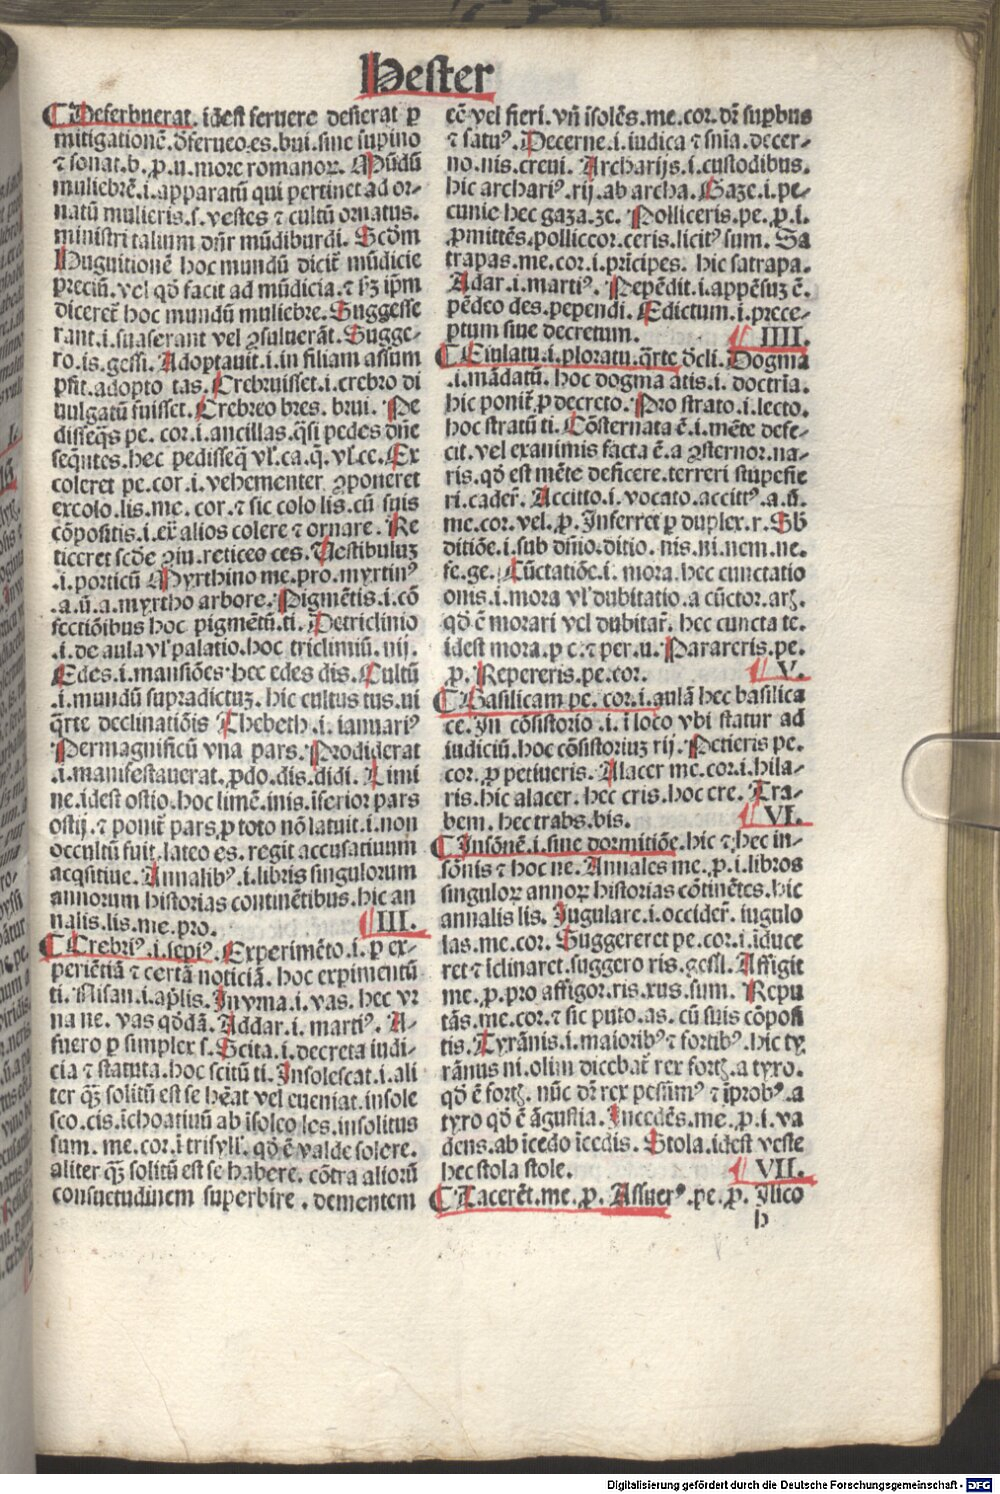 Hester
Deferbuerat. idest feruere desierat ꝑ
mitigationē. d̄ferueo.es.bui.sine supino
⁊ sonat.b.ꝑ.u.more romanoꝝ. Mūdū
muliebrē.i.apparatū qui pertinet ad or-
natū mulieris.s.vestes ⁊ cultū ornatus.
ministri talium dn̄r mūdiburdi. Scd̄m
Huguitionē hoc mundū dicit̄ mūdicie
preciū.vel qd̄ facit ad mūdicia.⁊ sꝫ ip̄m
diceret̄ hoc mundū muliebre. Suggesse
rant.i.suaserant vel ꝯsuluerāt. Sugge-
ro.is.gessi. Adoptauit.i.in filiam assum
psit.adopto tas. Crebruisset.i.crebro di
uulgatū fuisset. Crebreo bres. brui. Pe
disseq̄s pe. cor.i.ancillas.q̄si pedes dn̄e
seq̄ntes.hec pedisseq̄ vl̓.ca.q̄.vl̓.ce. Ex
coleret pe.cor.i.vehementer ꝯponeret
excolo.lis.me.cor.⁊ sic colo lis.cū suis
cōpositis.i.ex̄ alios colere ⁊ ornare. Re
ticeret scd̄e ꝯiu.reticeo ces. Vestibuluꝫ
.i.porticū Myrthino me.pro.myrtinꝰ
.a.ū.a myrtho arbore. Pigmētis.i.cō
fectiōibus hoc pigmētū.ti. Detriclinio
.i.de aula vl̓ palatio.hoc tricliniū.nij.
Edes.i.mansiōes hec edes dis. Cultū
.i.mundū supradictuꝫ. hic cultus tus.ui
q̄rte declinatiōis Thebeth.i.ianuariꝰ
Permagnificū vna pars. Prodiderat
.i.manifestauerat.ꝓdo.dis.didi. Limi
ne.idest ostio.hoc limē.inis.īferior pars
ostij.⁊ ponit̄ pars ꝓ toto nō latuit.i.non
occultū fuit.lateo es. regit accusatiuum
acq̄sitiue. Annalibꝰ.i.libris singulorum
annorum historias continētibus.hic an
nalis.lis.me.pro. III.
Crebriꝰ.i.sepiꝰ. Experimēto.i.ꝑ ex-
periētiā ⁊ certā noticiā. hoc exꝑimentū
ti. Nisan.i.apl̄is. In vrna.i.vas. hec vr
na ne. vas qd̄dā. Addar.i.martiꝰ. A-
fuero ꝑ simplex s. Scita.i.decreta iudi-
cia ⁊ statuta.hoc scitū ti. Insolescat.i.ali
ter q̄ꝫ solitū est se hēat vel eueniat.insole
sco.cis.īchoatiuū ab īsoleo les.insolitus
sum. me.cor.ī trisyll̓. qd̄ ē valde solere.
aliter q̄ꝫ solitū est se habere. cōtra aliorū
consuetudinem superbire. dementem
eē vel fieri.vn̄ īsolēs.me.cor.dr̄ suꝑbus
⁊ fatuꝰ. Decerne.i.iudica ⁊ sn̄ia.decer-
no.nis.creui. Archarijs.i.custodibus.
hic archariꝰ.rij.ab archa. Gaze.i.pe-
cunie hec gaza.ze. Polliceris.pe.ꝓ.i.
ꝓmittēs.polliceor.ceris.licitꝰ sum. Sa
trapas.me.cor.i.prīcipes. hic satrapa.
Adar.i.martiꝰ. Pepēdit.i.appēsuꝫ ē.
pēdeo des.pependi. Edictum.i.prece-
ptum siue decretum. IIII.
Eiulatu.i.ploratu.q̄rte d̄cli. Dogma
.i.mādatū. hoc dogma atis.i. doctrīa.
hic ponit̄ ꝓ decreto. Pro strato.i.lecto.
hoc stratū ti. Cōsternata ē.i.mēte defe-
cit.vel exanimis facta ē.a ꝯsternor.na-
ris.qd̄ est mēte deficere.terreri stupefie
ri.cader̄. Accitto.i.vocato.accittꝰ.a.ū.
me.cor.vel.ꝓ. Inferret ꝑ duplex.r. Sb
ditiōe.i.sub dn̄io.ditio. nis.ni.nem.ne.
fe.ge. Cūctatiōe.i. mora.hec cunctatio
onis.i.mora vl̓ dubitatio.a cūctor.arꝫ.
qd̄ ē morari vel dubitar̄. hec cuncta te.
idest mora.ꝑ c.⁊ per.u. Parareris.pe.
ꝓ. Repereris.pe.cor. V.
Basilicam.pe. cor.i.aulā hec basilica
ce. In cōsistorio.i.ī loco vbi statur ad
iudiciū.hoc cōsistoriuꝫ rij. Petieris pe.
cor.ꝓ petiueris. Alacer me.cor.i.hila-
ris.hic alacer. hec cris.hoc cre. Tra-
bem. hec trabs.bis. VI.
Insōnē.i.sine dormitiōe.hic ⁊ hec in-
sōnis ⁊ hoc ne. Annales me.ꝓ.i.libros
singuloꝝ annoꝝ historias cōtinētes.hic
annalis lis. Jugulare.i.occider̄. iugulo
las.me.cor. Suggereret pe.cor.i.īduce
ret ⁊ īclinaret.suggero ris.gessi. Affigit
me.ꝓ.pro affigor.ris.xus.sum. Repu
tās.me.cor.⁊ sic puto.as. cū suis cōposi
tis. Tyrānis.i.maioribꝰ ⁊ fortibꝰ. hic ty
rānus ni.olim dicebat̄ rex fortꝫ.a tyro.
qd̄ ē fortꝫ. nūc dr̄ rex pessimꝰ ⁊ īprobꝰ.a
tyro qd̄ ē āgustia. Incedēs.me.ꝓ.i.va
dens.ab īcedo īcedis. Stola.idest veste
hec stola stole. VII.
Tacerēt.me.ꝓ. Assuerꝰ.pe.ꝓ. Ilico
h
Digitalisierung gefördert durch die Deutsche Forschungsgemeinschaft - DFG